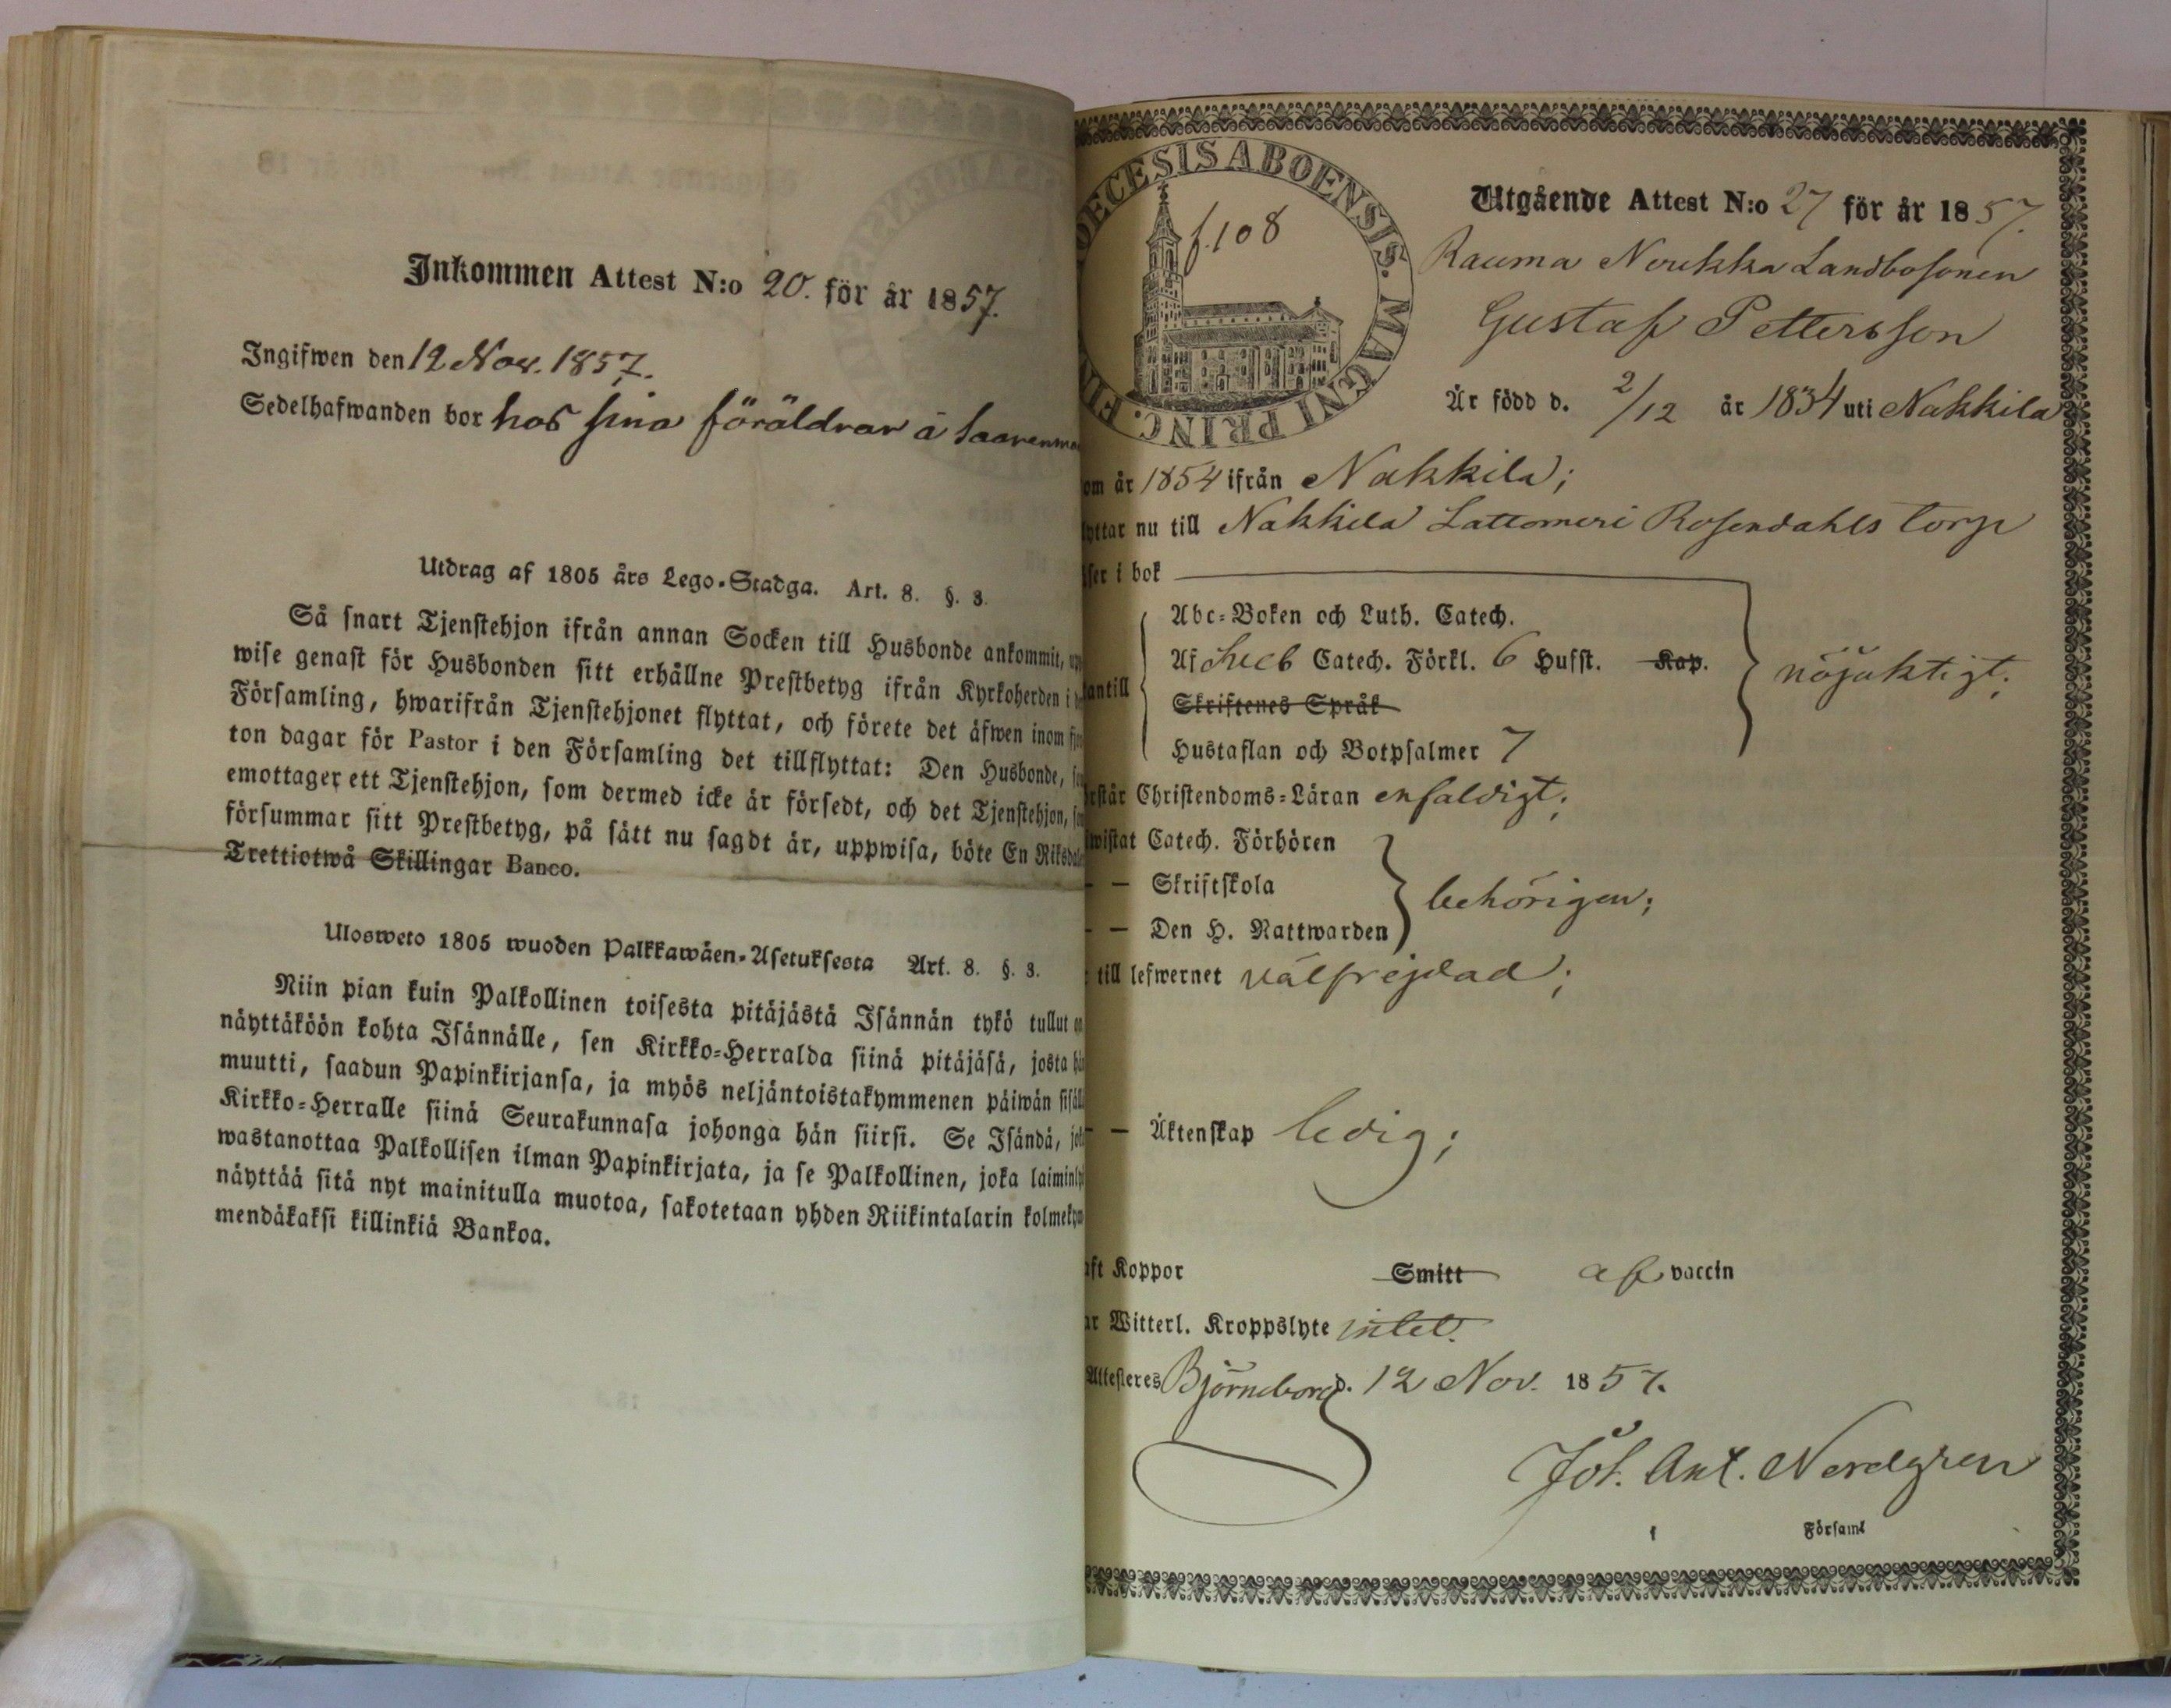 Inkommen Attest N:o 20. för år 1857.
Ingifwen den 12 Nov. 1857.
Sedelhafwanden bor hos sina föräldrar å Saarenmaa
Utdrag af 1805 års Lego-Stadga. Art. 8. §. 3.
Så snart Tjenstehjon ifrån annan Socken till Husbonde ankommit, upp
wise genast för Husbonden sitt erhållne Prestbetyg ifrån Kyrkoherden i
Församling, hwarifrån Tjenstehjonet flyttat, och förete det äfwen inom fjor
ton dagar för Pastor i den Församling det tillflyttat: Den Husbonde, som
emottager ett Tjenstehjon, som dermed icke är försedt, och det Tjenstehjon, som
försummar sitt Prestbetyg, på sätt nu sagdt är, uppwisa, böte En Riksdaler
Trettiotwå Skillingar Banco.
Ulosweto 1805 wuoden Palkkawäen-Asetuksesta Art. 8. §. 3.
Niin pian kuin Palkollinen toisesta pitäjästä Isännän tykö tullut on
näyttäköön kohta Isännälle, sen Kirkko-Herralda siinä pitäjäsä, josta hän
muutti, saadun Papinkirjansa, ja myös neljäntoistakymmenen päiwän sisällä
Kirkko-Herralle siinä Seurakunnasa johonga hän siirsi. Se Isändä, joka
wastanottaa Palkollisen ilman Papinkirjata, ja se Palkollinen, joka laiminlyö
näyttää sitä nyt mainitulla muotoa, sakotetaan yhden Riikintalarin kolmekym
mendäkaksi killinkiä Bankoa.
DECESIS ABOENSIS. MAGNI PRINC. FIN
f. 108
Utgående Attest N:o 27 för år 1857.
Rauma Noukka Landbosonen
Gustaf Pettersson
Är född d. 2/12 år 1834 uti Nakkila
om år 1854 ifrån Nakkila;
yttar nu till Nakkila Lattomeri Rosendahls torp
ser i bok
Abc-Boken och Luth. Catech.
Af Sveb Catech. Förkl. 6 Hufst. Kap.
antill
Skriftenes Språk
nöjaktigt;
Hustaflan och Botpsalmer 7
rstår Christendoms-Läran enfaldigt;
wistat Catech. Förhören
— — Skriftskola
behörigen;
— — Den H. Nattwarden
till lefwernet välfrejdad;
— — Äktenskap ledig;
ft Koppor Smitt af vaccin
ar Witterl. Kroppslyte intet.
Attesteres Björneborg d. 12 Nov. 1857.
Joh. Ant. Nordgren
i Församl